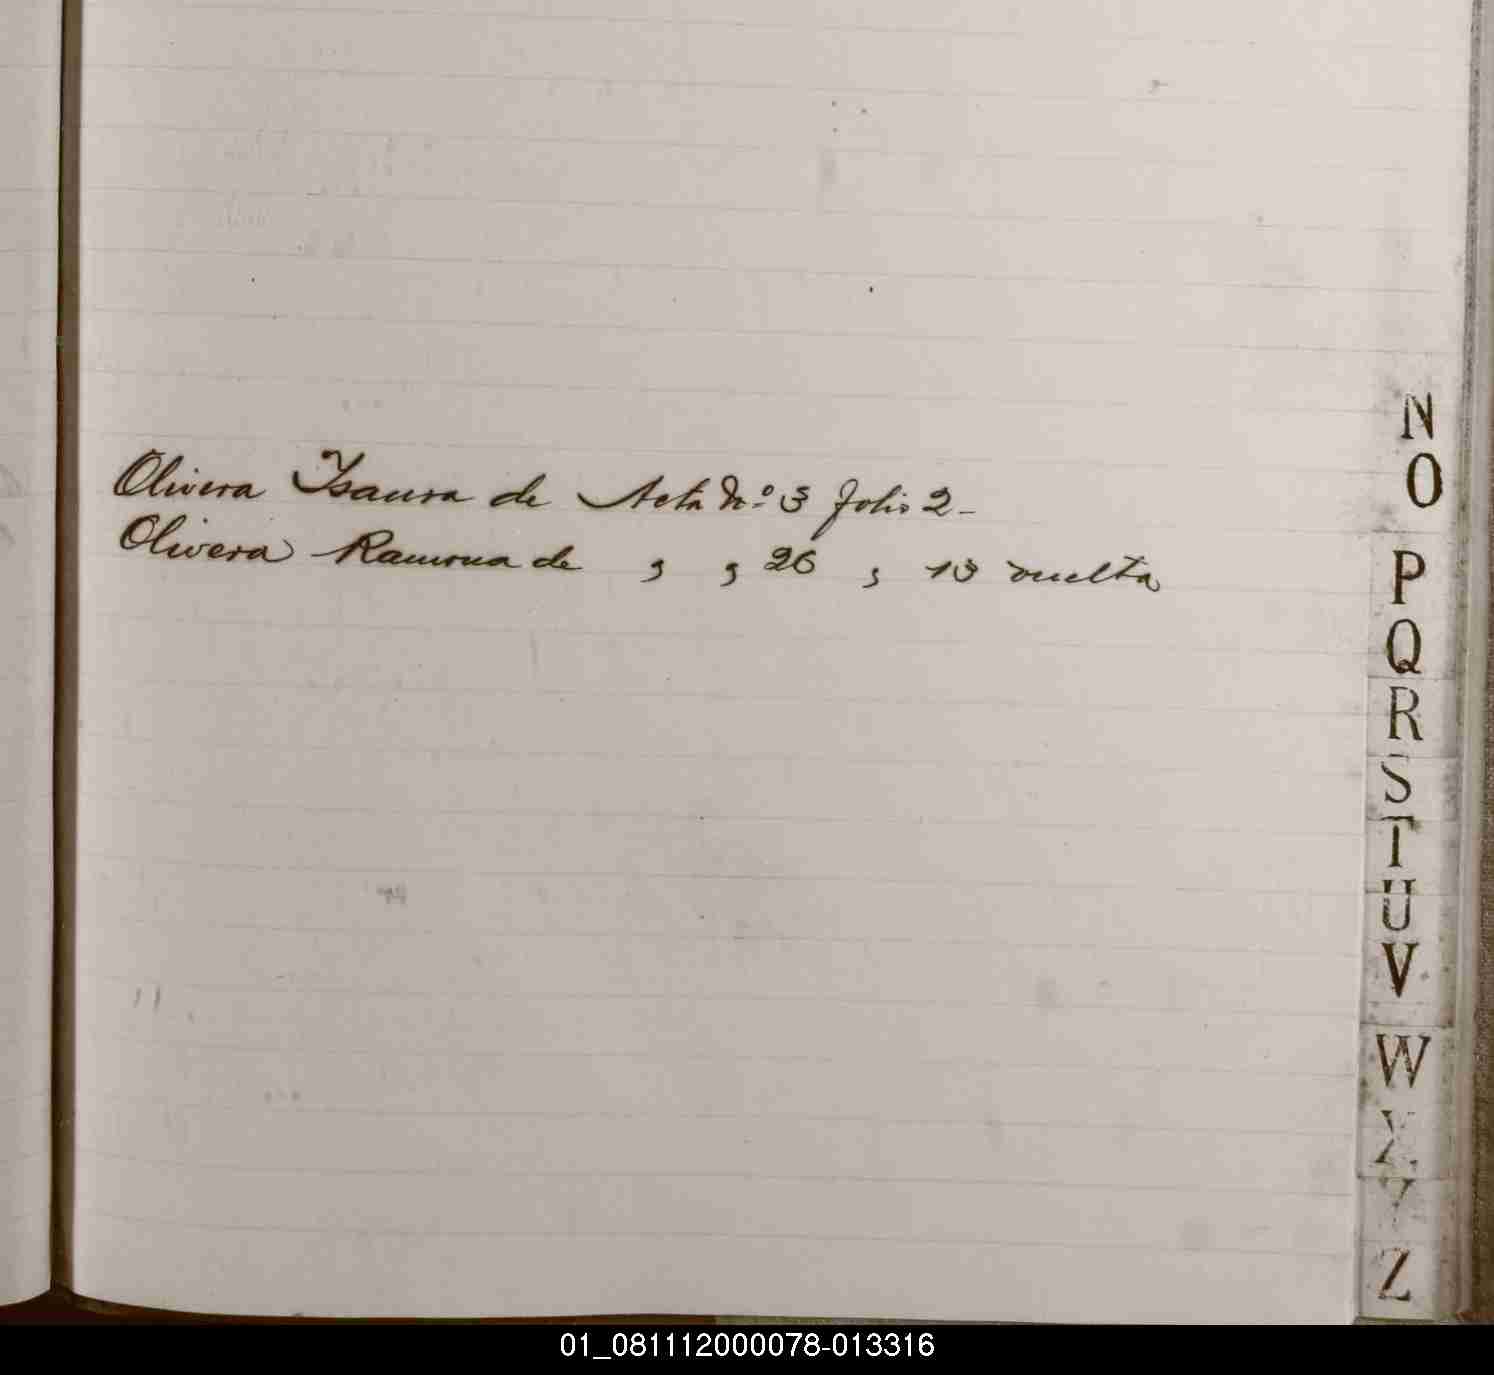 N
O
Olivera Ysaura de Acta No. 3 folio 2-
Olivera Ramona de , , 26 , 13 vuelta
P
Q
R
S
T
U
V
W
X
Y
Z
01_081112000078-013316